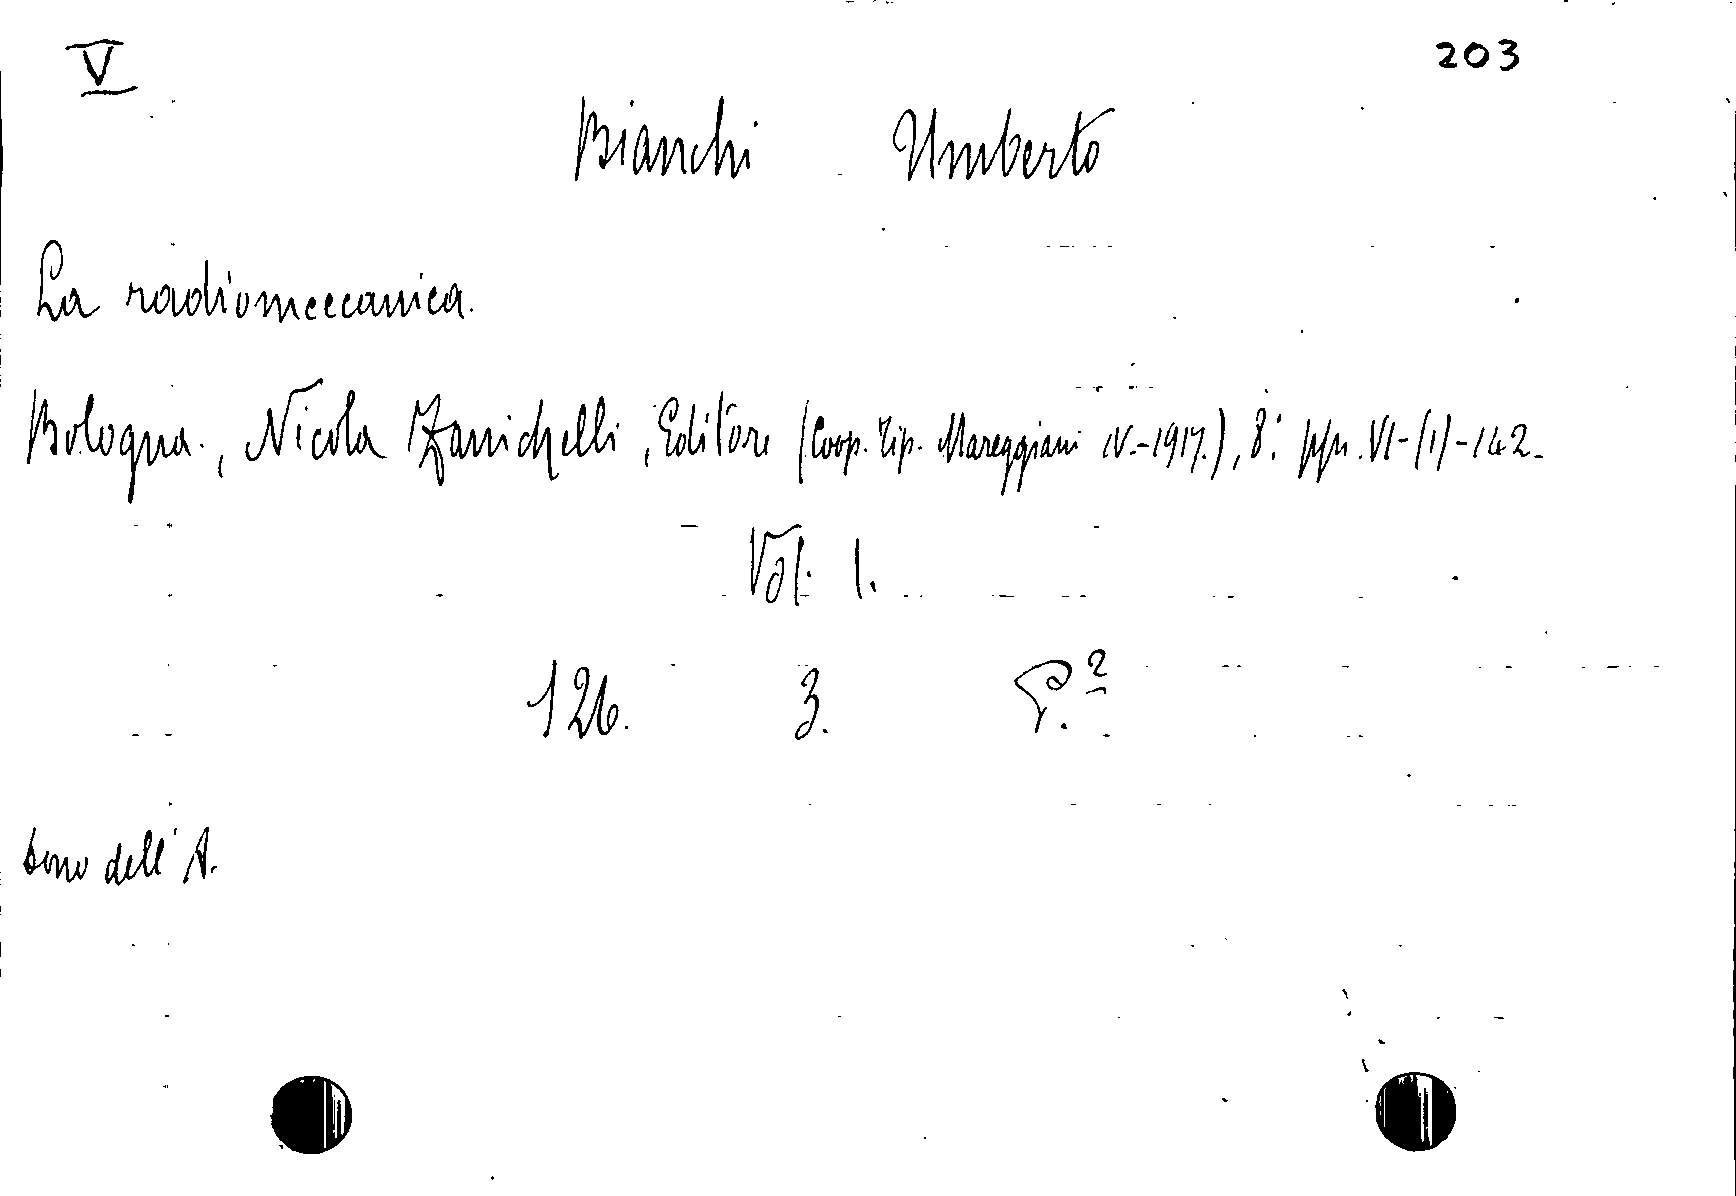 V 203
Bianchi Umberto
La radiomeccanica.
Bologna., Nicola Zanichelli, Editore (Coop. Tip. Mareggiani IV.-1917.), 8: pp. VI-(1)-142.
Vol. 1.
126. 3. P.2
dono dell'A.